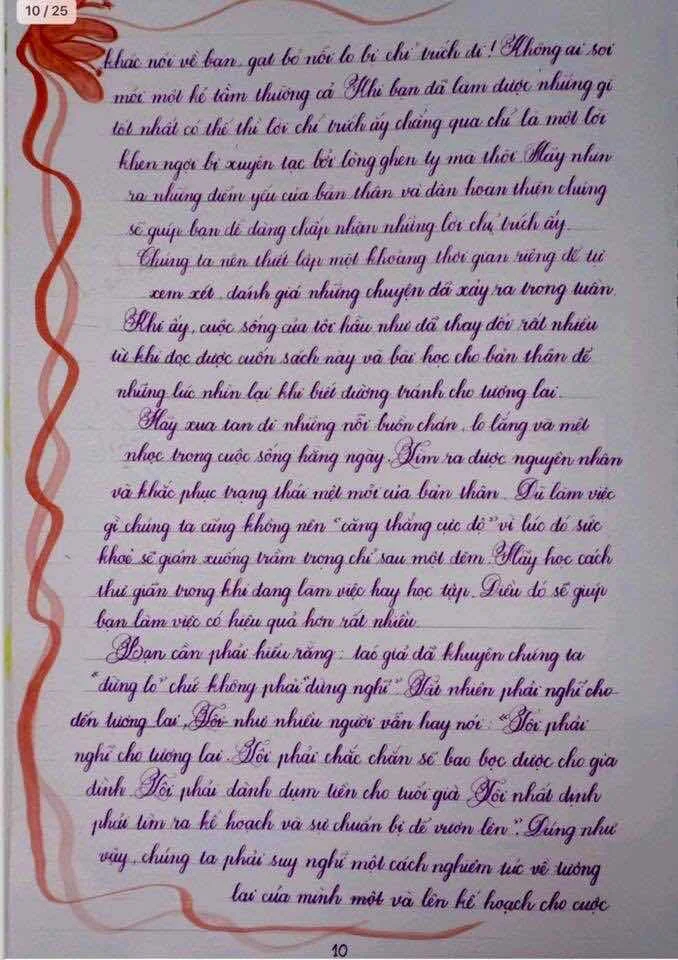 10 / 25
khác nói về bạn, gạt bỏ nỗi lo bị chỉ trích đi! Không ai soi
mói một kẻ tầm thường cả. Khi bạn đã làm được những gì
tốt nhất có thể thì lời chỉ trích ấy chẳng qua chỉ là một lời
khen ngợi bị xuyên tạc bởi lòng ghen tỵ mà thôi. Hãy nhìn
ra những điểm yếu của bản thân và dần hoàn thiện chúng
sẽ giúp bạn dễ dàng chấp nhận những lời chỉ trích ấy.
Chúng ta nên thiết lập một khoảng thời gian riêng để tự
xem xét, đánh giá những chuyện đã xảy ra trong tuần.
Khi ấy, cuộc sống của tôi hầu như đã thay đổi rất nhiều
từ khi đọc được cuốn sách này và bài học cho bản thân để
những lúc nhìn lại khi biết đường tránh cho tương lai.
Hãy xua tan đi những nỗi buồn chán, lo lắng và mệt
nhọc trong cuộc sống hằng ngày. Tìm ra được nguyên nhân
và khắc phục trạng thái mệt mỏi của bản thân. Dù làm việc
gì chúng ta cũng không nên "căng thẳng cực độ" vì lúc đó sức
khoẻ sẽ giảm xuống trầm trọng chỉ sau một đêm. Hãy học cách
thư giãn trong khi đang làm việc hay học tập. Điều đó sẽ giúp
bạn làm việc có hiệu quả hơn rất nhiều.
Bạn cần phải hiểu rằng: tác giả đã khuyên chúng ta
"đừng lo" chứ không phải "đừng nghĩ". Tất nhiên phải nghĩ cho
đến tương lai, Tôi như nhiều người vẫn hay nói: "Tôi phải
nghĩ cho tương lai. Tôi phải chắc chắn sẽ bao bọc được cho gia
đình. Tôi phải dành dụm tiền cho tuổi già. Tôi nhất định
phải tìm ra kế hoạch và sự chuẩn bị để vươn lên". Đúng như
vậy, chúng ta phải suy nghĩ một cách nghiêm túc về tương
lai của mình một và lên kế hoạch cho cuộc
10